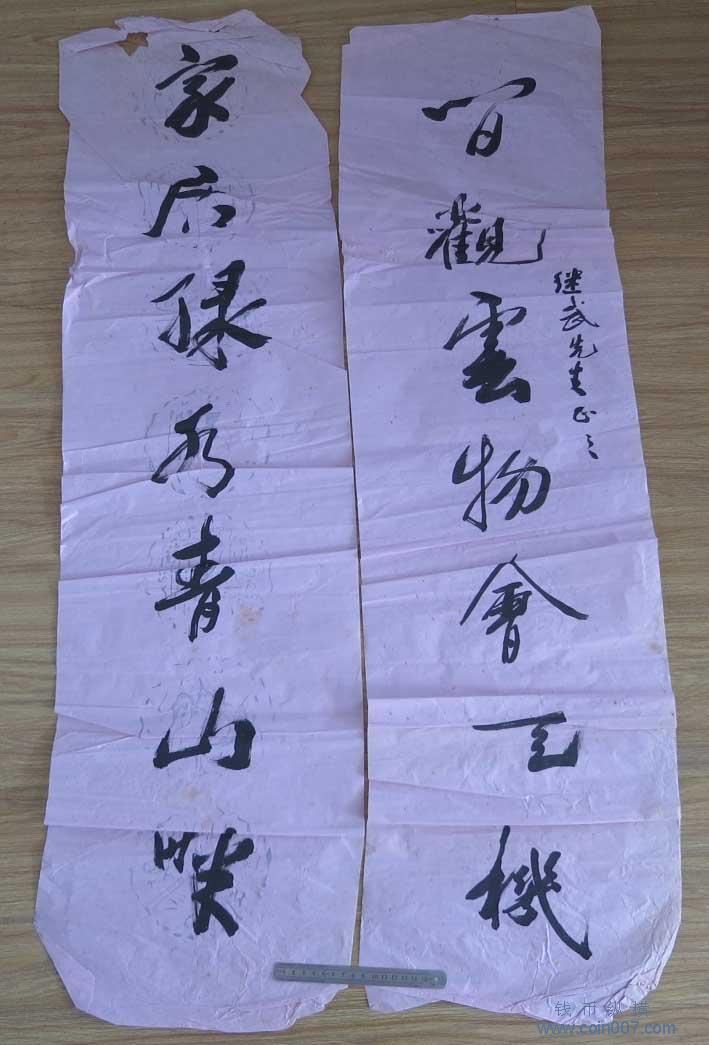 間觀雲物會天機
继武先生正之
家居绿水青山畔
钱币纵横
www.coin007.com